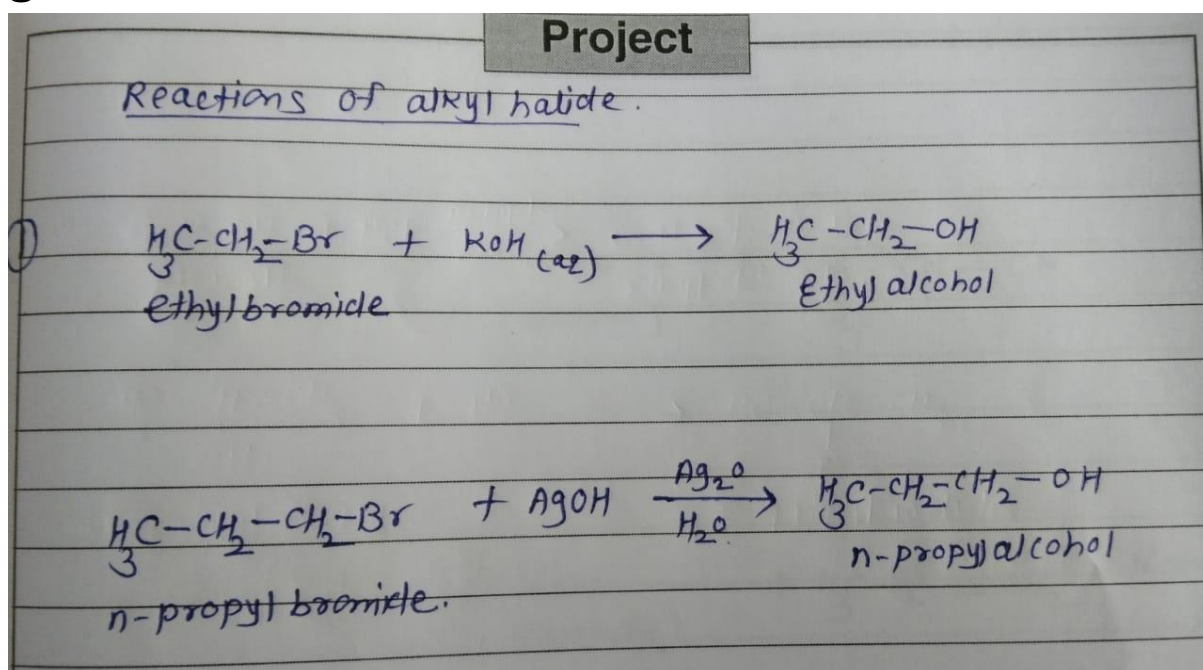 Project
Reactions of alkyl halide.
① H₃C-CH₂-Br + KOH (aq) ⟶ H₃C-CH₂-OH
Ethyl bromide Ethyl alcohol
H₃C-CH₂-CH₂-Br + AgOH Ag₂O / H₂O ⟶ H₃C-CH₂-CH₂-OH
n-propyl bromide. n-propyl alcohol